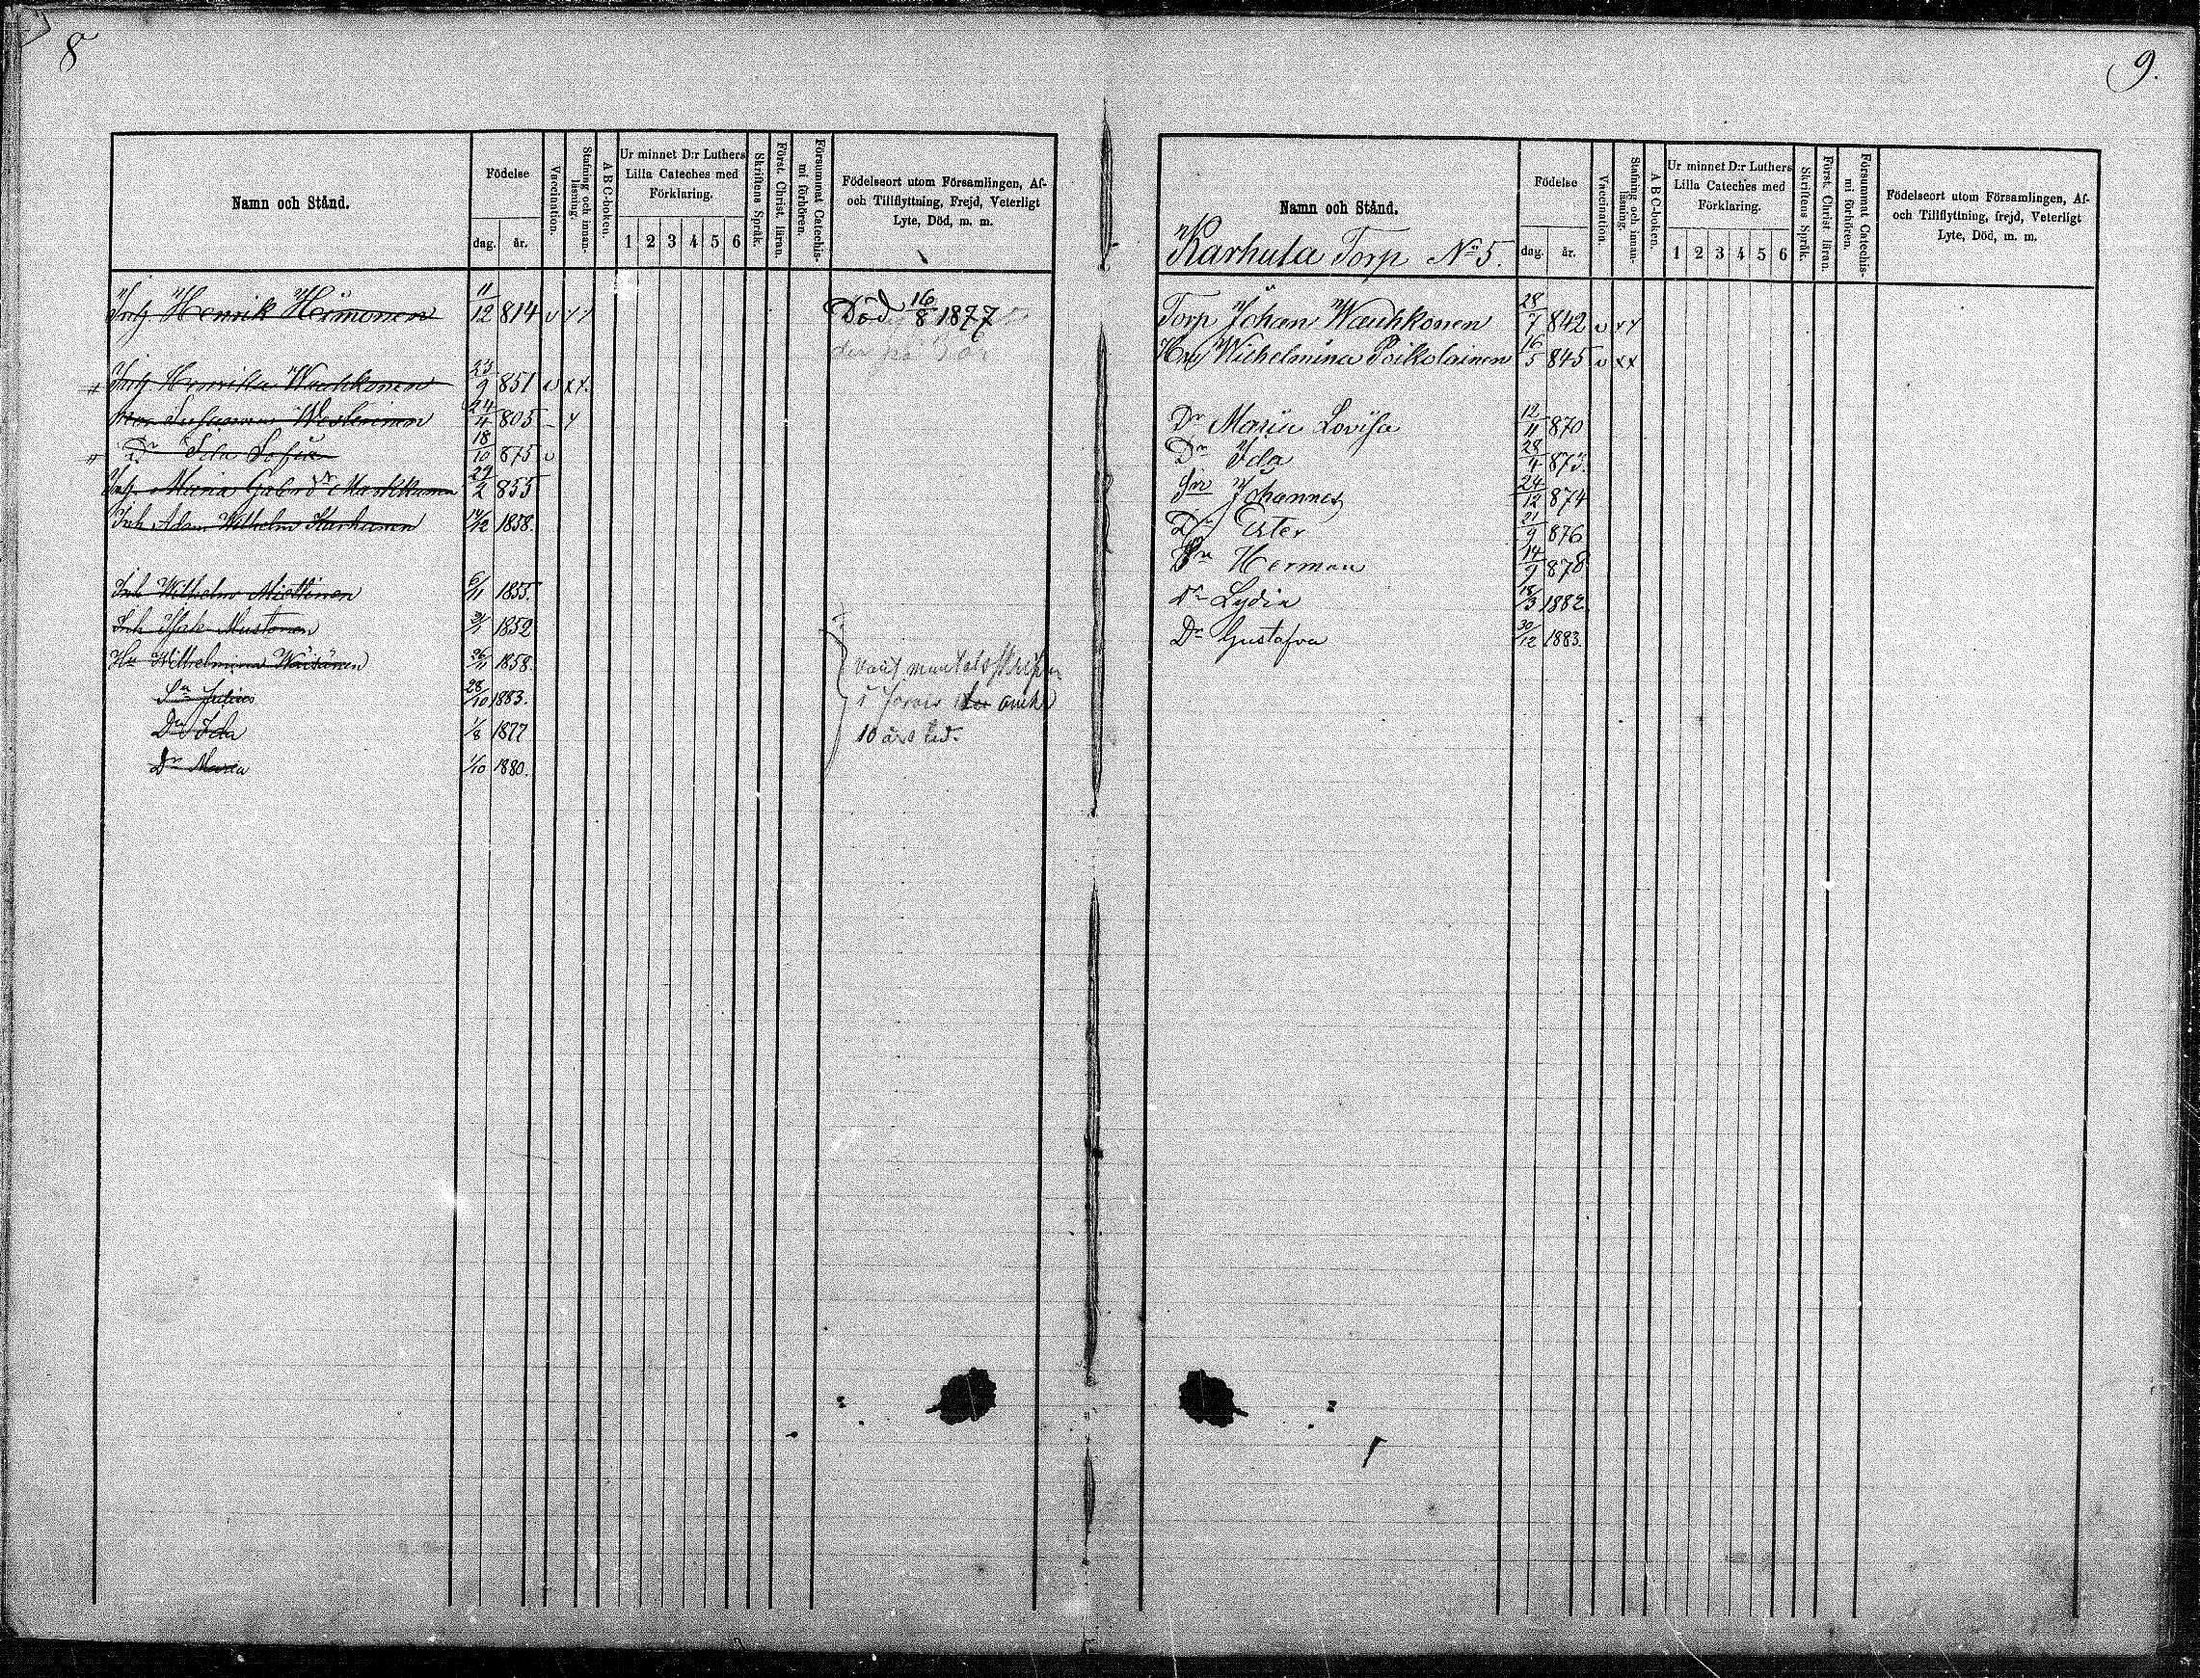 8
Namn och Stånd.
Födelse
dag. år.
Vaccination.
Stafning och innan-
läsning.
A B C-boken.
Ur minnet D:r Luthers
Lilla Cateches med
Förklaring.
1 2 3 4 5 6
Skriftens Språk.
Först. Christ. läran.
Försummat Catechis-
mi förhören.
Födelseort utom Församlingen, Af-
och Tillflyttning, Frejd, Veterligt
Lyte, Död, m. m.
Inh Henrik Heimonen 11/12 814 v x x Död 16/8 1877
Inh Henrika Wauhkonen 23/9 851 v x x
Susanna Westerinen 24/4 805 - x
Dr Ida Sofia 18/10 875 v
Inh. Maria Gabr dr Markkanen 29/2 855
Inh Adam Wilhelm Karhunen /12 1858.
Inh Wilhelm Miettinen 6/11 1855.
Inh Isak Mustonen 1852
Hu Wilhelmina Wäisänen 26/11 1858.
Sn Julius 28/10 1883.
Dr Ida 1/8 1877
Dr Maria 1/10 1880.
varit mantalsskrifn
i
10 års tid.
9.
Namn och Stånd.
Karhula Torp No 5.
Födelse
dag. år.
Vaccination.
Stafning och innan-
läsning.
A B C-boken.
Ur minnet D:r Luthers
Lilla Cateches med
Förklaring.
1 2 3 4 5 6
Skriftens Språk.
Först. Christ läran.
Försummat Catechis-
mi förhören.
Födelseort utom Församlingen, Af-
och Tillflyttning, frejd, Veterligt
Lyte, Död, m. m.
Torp Johan Wauhkonen 28/7 842 v x x
Hu Wilhelmina Poikolainen 16/5 845 v x x
Dr Maria Lovisa 12/11 870
Dr Ida 28/4 873.
Sn Johannes 24/12 874
Dr Ester 21/9 876
Sn Herman 14/9 878
Dr Lydia 18/3 1882.
Dr Gustafva 30/12 1883.